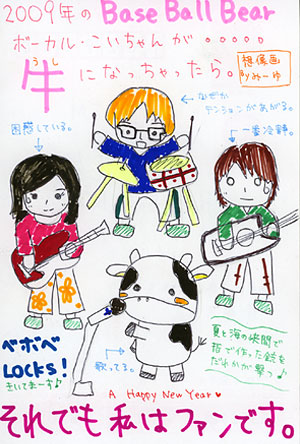 2009年の Base Ball Bear
ボーカル・こいちゃんが。。。。。
うし
牛になっちゃったら。
想像画
Byみーゆ
なぜか
テンションがあがる。
困惑している。
一番冷静。
ベボベ
LOCKS!
きいてまーす♪
歌ってる。
夏と海の狭間で
指で作った銃を
だれかが撃つ♪
A Happy New Year♥
それでも私はファンです。